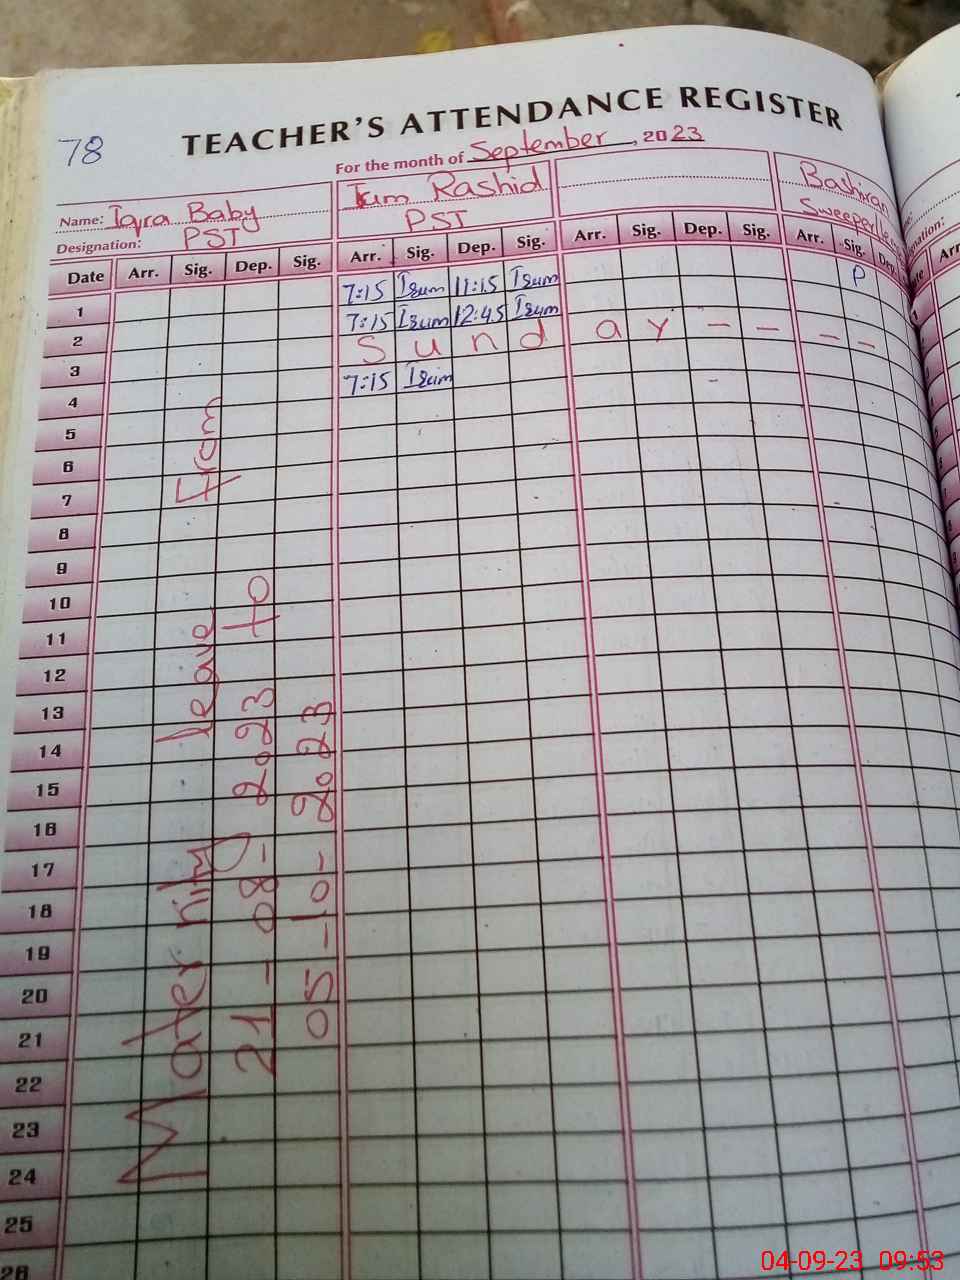 78
TEACHER'S ATTENDANCE REGISTER
For the month of September, 2023
Name: Iqra Baby Irum Rashid Bashiran
Designation: PST PST Sweeper
Date Arr. Sig. Dep. Sig. Arr. Sig. Dep. Sig. Arr. Sig. Dep. Sig. Arr. Sig. Dep.
1 7:15 Irum 11:15 Irum P
2 7:15 Irum 12:45 Irum
3 Sunday - - - -
4 7:15 Irum
5
6
7
8
9
10
11
12
13
14
15
16
17
18
19
20
21
22
23
24
25
26
Maternity leave From
21-08-2023 to
05-10-2023
04-09-23 09:53